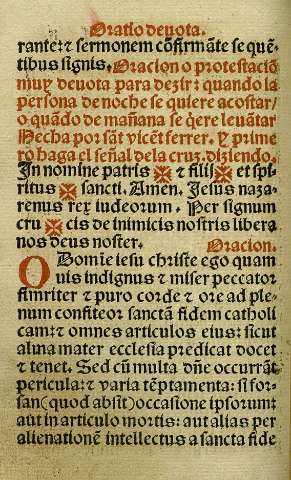 Oratio deuota.
rante: ⁊ sermonem cõfirmãte se quẽ-
tibus signis. Oracion o protestaciõ
muy deuota para dezir: quando la
persona de noche se quiere acostar/
o quãdo de mañana se q̃ere leuãtar
Hecha por sãt vicẽt ferrer. Y prime
ro haga el señal dela cruz. diziendo.
In nomine patris ✠ ⁊ filii ✠ et spi-
ritus ✠ sancti. Amen. Jesus naza-
renus rex iudeorum. Per signum
cru ✠ cis de inimicis nostris libera
nos deus noster. Oracion.
O Domine iesu christe ego quam
uis indignus ⁊ miser peccator
firmiter ⁊ puro corde ⁊ ore ad ple-
num confiteor sanctã fidem catholi
cam: ⁊ omnes articulos eius: sicut
alma mater ecclesia predicat docet
⁊ tenet. Sed cũ multa dñe occurrãt
pericula: ⁊ varia tẽptamenta: si for-
san (quod absit) occasione ipsorum:
aut in articulo mortis: aut alias per
alienationẽ intellectus a sancta fide